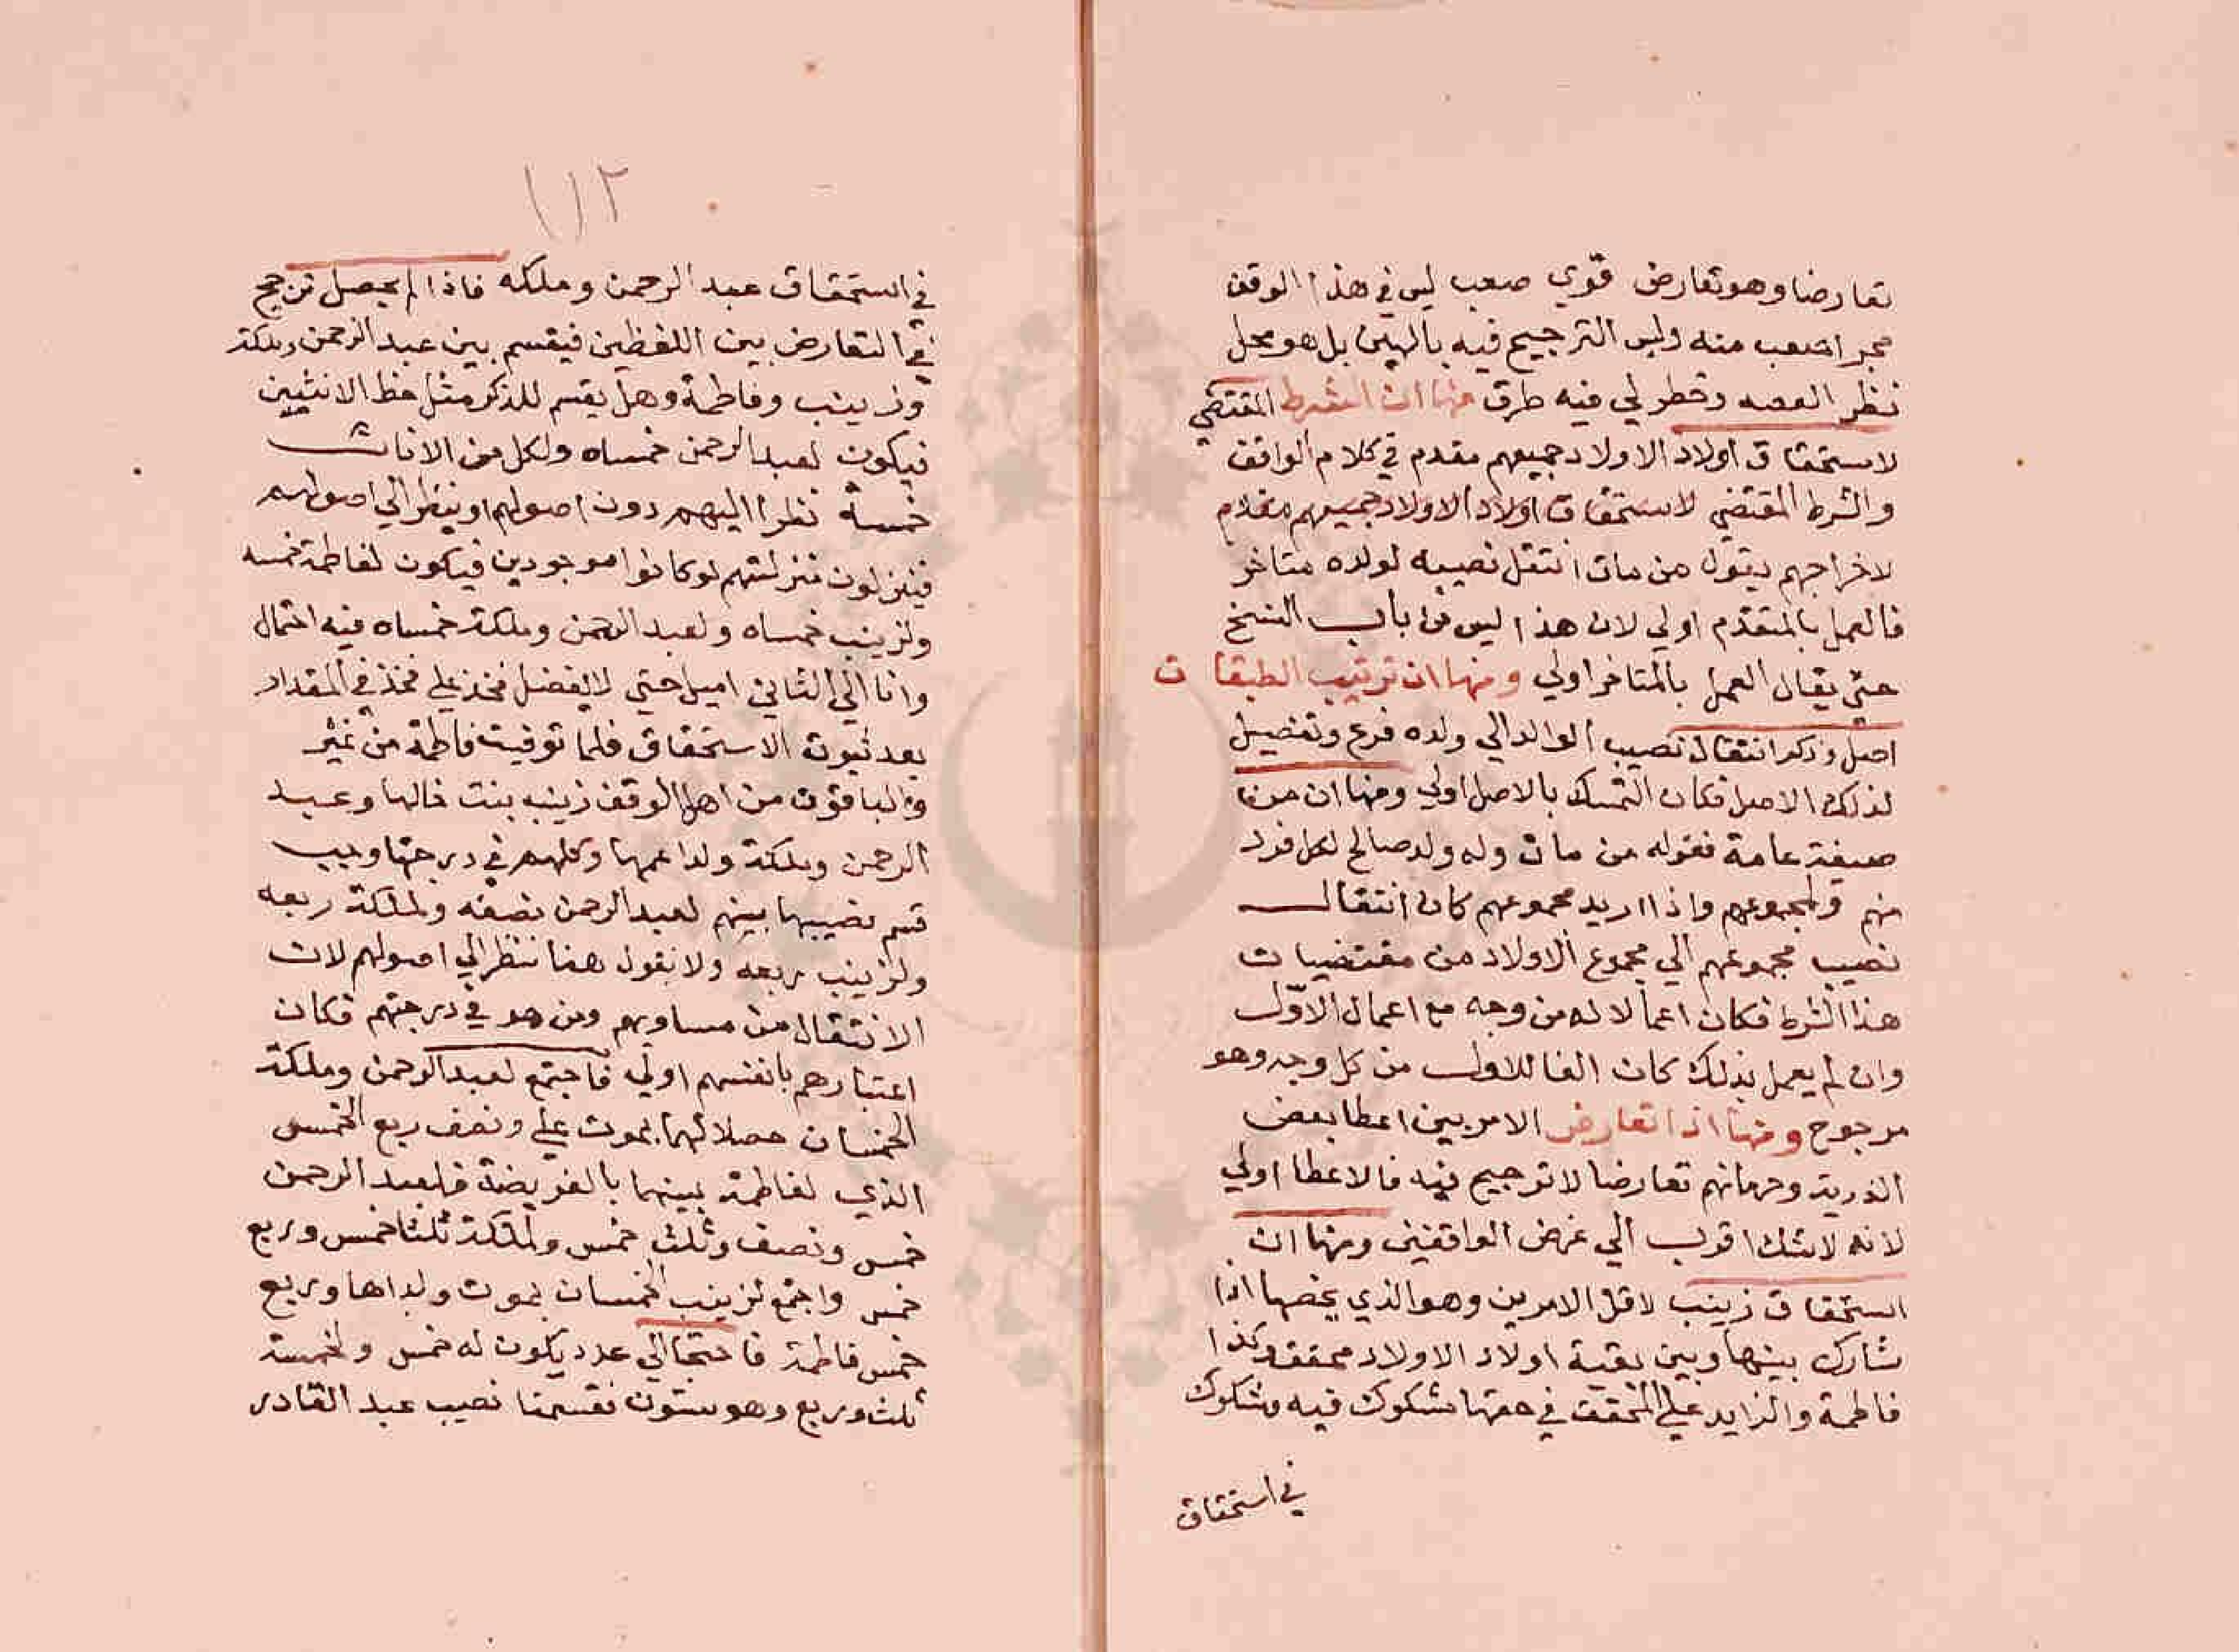 تعارضا وهو تعارض قوي صعب ليس في هذا الوقف
محجرا صعب منه وليس الترجيح فيه بالهين بل هو محل
نظر الفقيه وخطر لي فيه طرق منها ان الشرط المقتضي
لاستحقاق اولاد الاولاد جميعهم مقدم في كلام الواقف
والشرط المقتضي لاستحقاق اولاد الاولاد جميعهم مقدم
لاخراجهم بقوله من مات انتقل نصيبه لولده متاخر
فالعمل بالمتقدم اولي لان هذا ليس من باب النسخ
حتي يقال العمل بالمتاخر اولي ومنها ان ترتيب الطبقات
اصل وذكر انتقال نصيب الوالد الي ولده فرع وتفصيل
لذلك الاصل فكان التمسك بالاصل اولي ومنها ان من
صيغة عامة فقوله من مات وله ولد صالح لكل فرد
منهم ولمجموعهم واذا اريد مجموعهم كان انتقال
نصيب مجموعهم الي مجموع الاولاد من مقتضيات
هذا الشرط فكان اعمالا له من وجه مع اعمال الاول
وان لم يعمل بذلك كان الغا للاول من كل وجه وهو
مرجوح ومنها اذا تعارض الامر بين اعطا بعض
الذرية وحرمانهم تعارضا لا ترجيح فيه فالاعطا اولي
لانه لا شك اقرب الي غرض الواقفين ومنها ان
استحقاق زينب لاقل الامرين وهو الذي يخصها اذا
شارك بينها وبين بقية اولاد الاولاد محققة وكذا
فاطمة والزايد علي المحقق في حقها مشكوك فيه ومشكوك
في استحقاق
١١٢
في استحقاق عبد الرحمن وملكه فاذا لم يحصل ترجيح
في التعارض بين اللفظين فيقسم بين عبد الرحمن وملكة
وزينب وفاطمة وهل يقسم للذكر مثل حظ الانثيين
فيكون لعبد الرحمن خمساه ولكل من الاناث
خمسة نظرا اليهم دون اصولهم او ينظر الي اصولهم
فينزلون منزلتهم لو كانوا موجودين فيكون لفاطمة خمسه
ولزينب خمساه ولعبد الرحمن وملكة خمساه فيه احتمال
وانا الي الثاني اميل حتي لا يفضل فخذ علي فخذ في المقدار
بعد ثبوت الاستحقاق فلما توفيت فاطمة من غير
والباقون من اهل الوقف زينب بنت خالها وعبد
الرحمن وملكة ولدا عمها وكلهم في درجتها وجب
قسم نصيبها بينهم لعبد الرحمن نصفه ولملكة ربعه
ولزينب ربعه ولا نقول هنا ننظر الي اصولهم لان
الانتقال من مساويهم ومن هو في درجتهم فكان
اعتبارهم بانفسهم اولي فاجتمع لعبد الرحمن وملكة
الخمسان حصلا لهما بموت علي ونصف ربع الخمس
الذي لفاطمة بينهما بالفريضة فلعبد الرحمن
خمس ونصف وثلث خمس ولملكة ثلثا خمس وربع
خمس واجتمع لزينب الخمسان بموت ولداها وربع
خمس فاطمة فاحتجنا الي عدد يكون له خمس ولخمسة
ثلث وربع وهو ستون فقسمنا نصيب عبد القادر